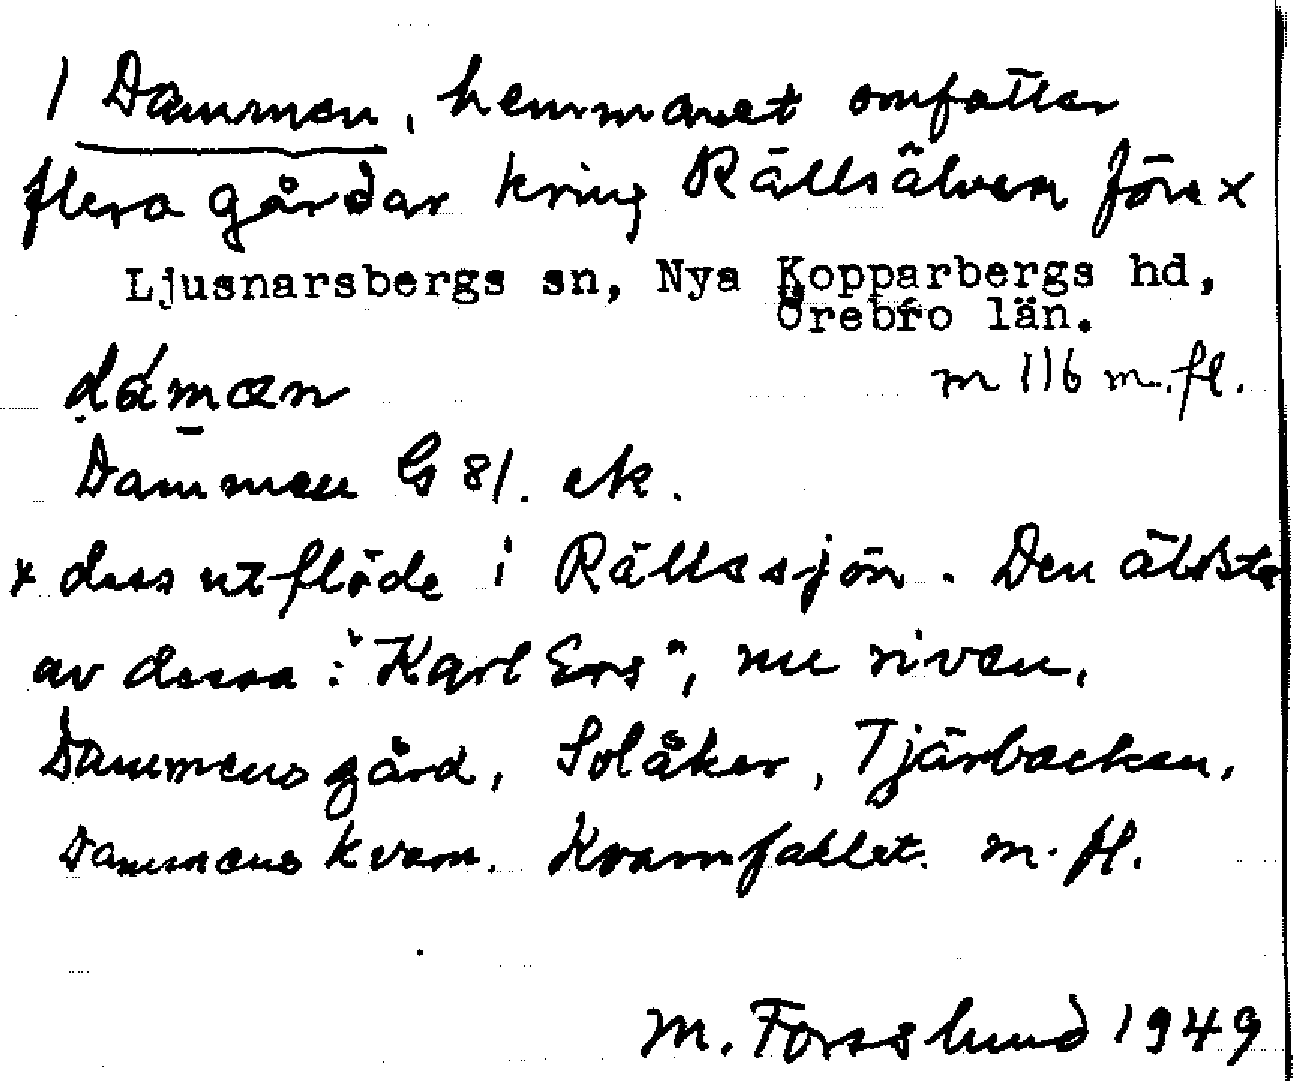 1 Dammen, hemmanet omfattar
flera gårdar kring Rällsälven före x
Ljusnarsbergs sn, Nya Kopparbergs hd,
Örebro län.
m 116 m. fl.
dáman
Dammen G 81. ek.
x dess utflöde i Rällssjön. Den äldsta
av dessa: "Karl Ers", nu riven.
Dammens gård, Solåker, Tjärbacken,
Dammens kvarn. Kvarnfallet. m. fl.
M. Forsslund 1949